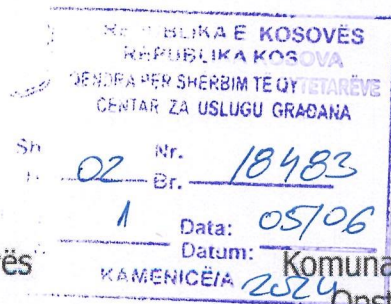 REPUBLIKA E KOSOVËS
REPUBLIKA KOSOVA
QENDRA PER SHERBIM TË QYTETARËVE
CENTAR ZA USLUGU GRAĐANA
Sh Nr.
02 Br. 18483
1 Data: 05/06
Datum:
ës KAMENICË/A 2024 Komuna